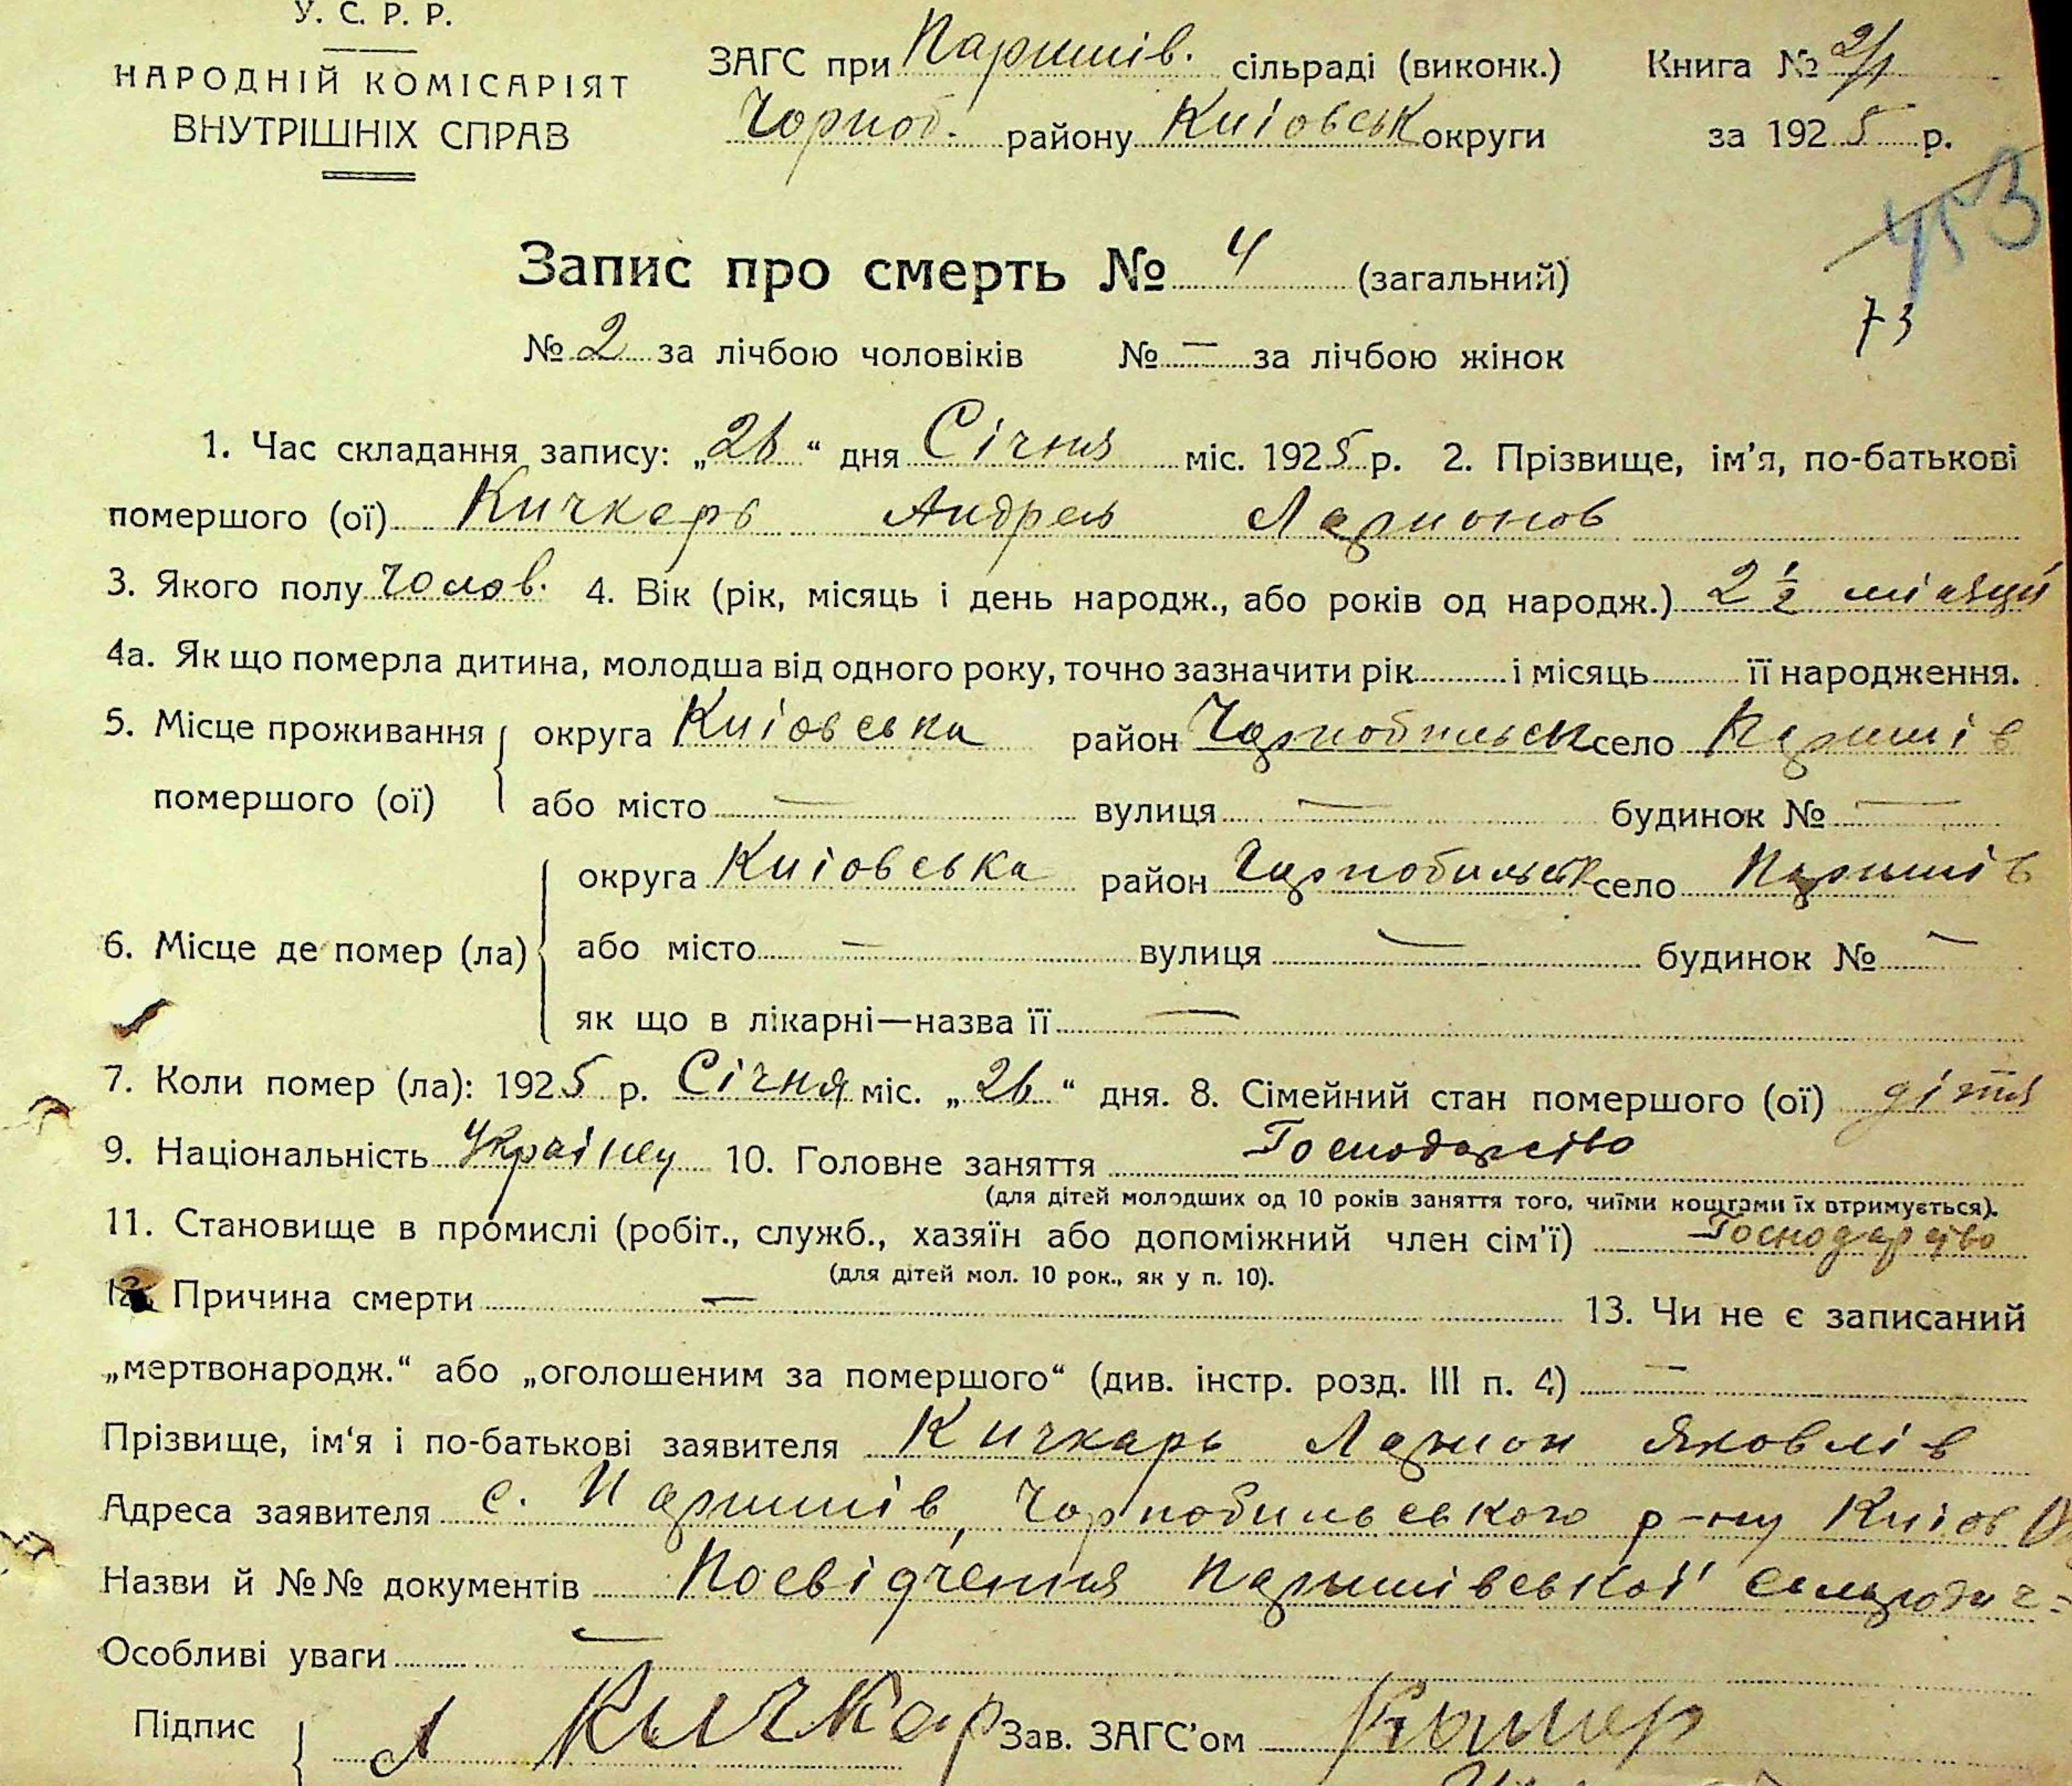 У. С. Р. Р.
НАРОДНІЙ КОМІСАРІЯТ
ВНУТРІШНІХ СПРАВ
ЗАГС при Паришів. сільраді (виконк.) Книга № 2/1
Чорноб. району Киіовськ округи за 1925 р.
453
73
Запис про смерть № 4 (загальний)
№ 2 за лічбою чоловіків № — за лічбою жінок
1. Час складання запису: „26“ дня Січня міс. 1925 р. 2. Прізвище, ім’я, по-батькові
помершого (ої) Кичкарь Андрей Ларионов
3. Якого полу чолов. 4. Вік (рік, місяць і день народж., або років од народж.) 2 ½ місяци
4а. Як що померла дитина, молодша від одного року, точно зазначити рік і місяць її народження.
5. Місце проживання помершого (ої) округа Киіовська район Чорнобильськ село Паришів
або місто — вулиця — будинок № —
6. Місце де помер (ла) округа Киіовська район Чорнобильськ село Паришів
або місто — вулиця — будинок № —
як що в лікарні—назва її —
7. Коли помер (ла): 1925 р. Січня міс. „26“ дня. 8. Сімейний стан помершого (ої) дітя
9. Національність Украінец 10. Головне заняття Господарство
(для дітей молодших од 10 років заняття того, чиїми коштами їх отримується).
11. Становище в промислі (робіт., служб., хазяїн або допоміжний член сім’ї) Господарство
(для дітей мол. 10 рок., як у п. 10).
12. Причина смерти — 13. Чи не є записаний
„мертвонародж.“ або „оголошеним за помершого“ (див. інстр. розд. III п. 4) —
Прізвище, ім‘я і по-батькові заявителя Кичкарь Ларион Яковлів
Адреса заявителя с. Паришів, Чорнобильського р-ну Киіов
Назви й №№ документів Посвідчення Паришівськоі
Особливі уваги —
Підпис Л Кычкар Зав. ЗАГС’ом